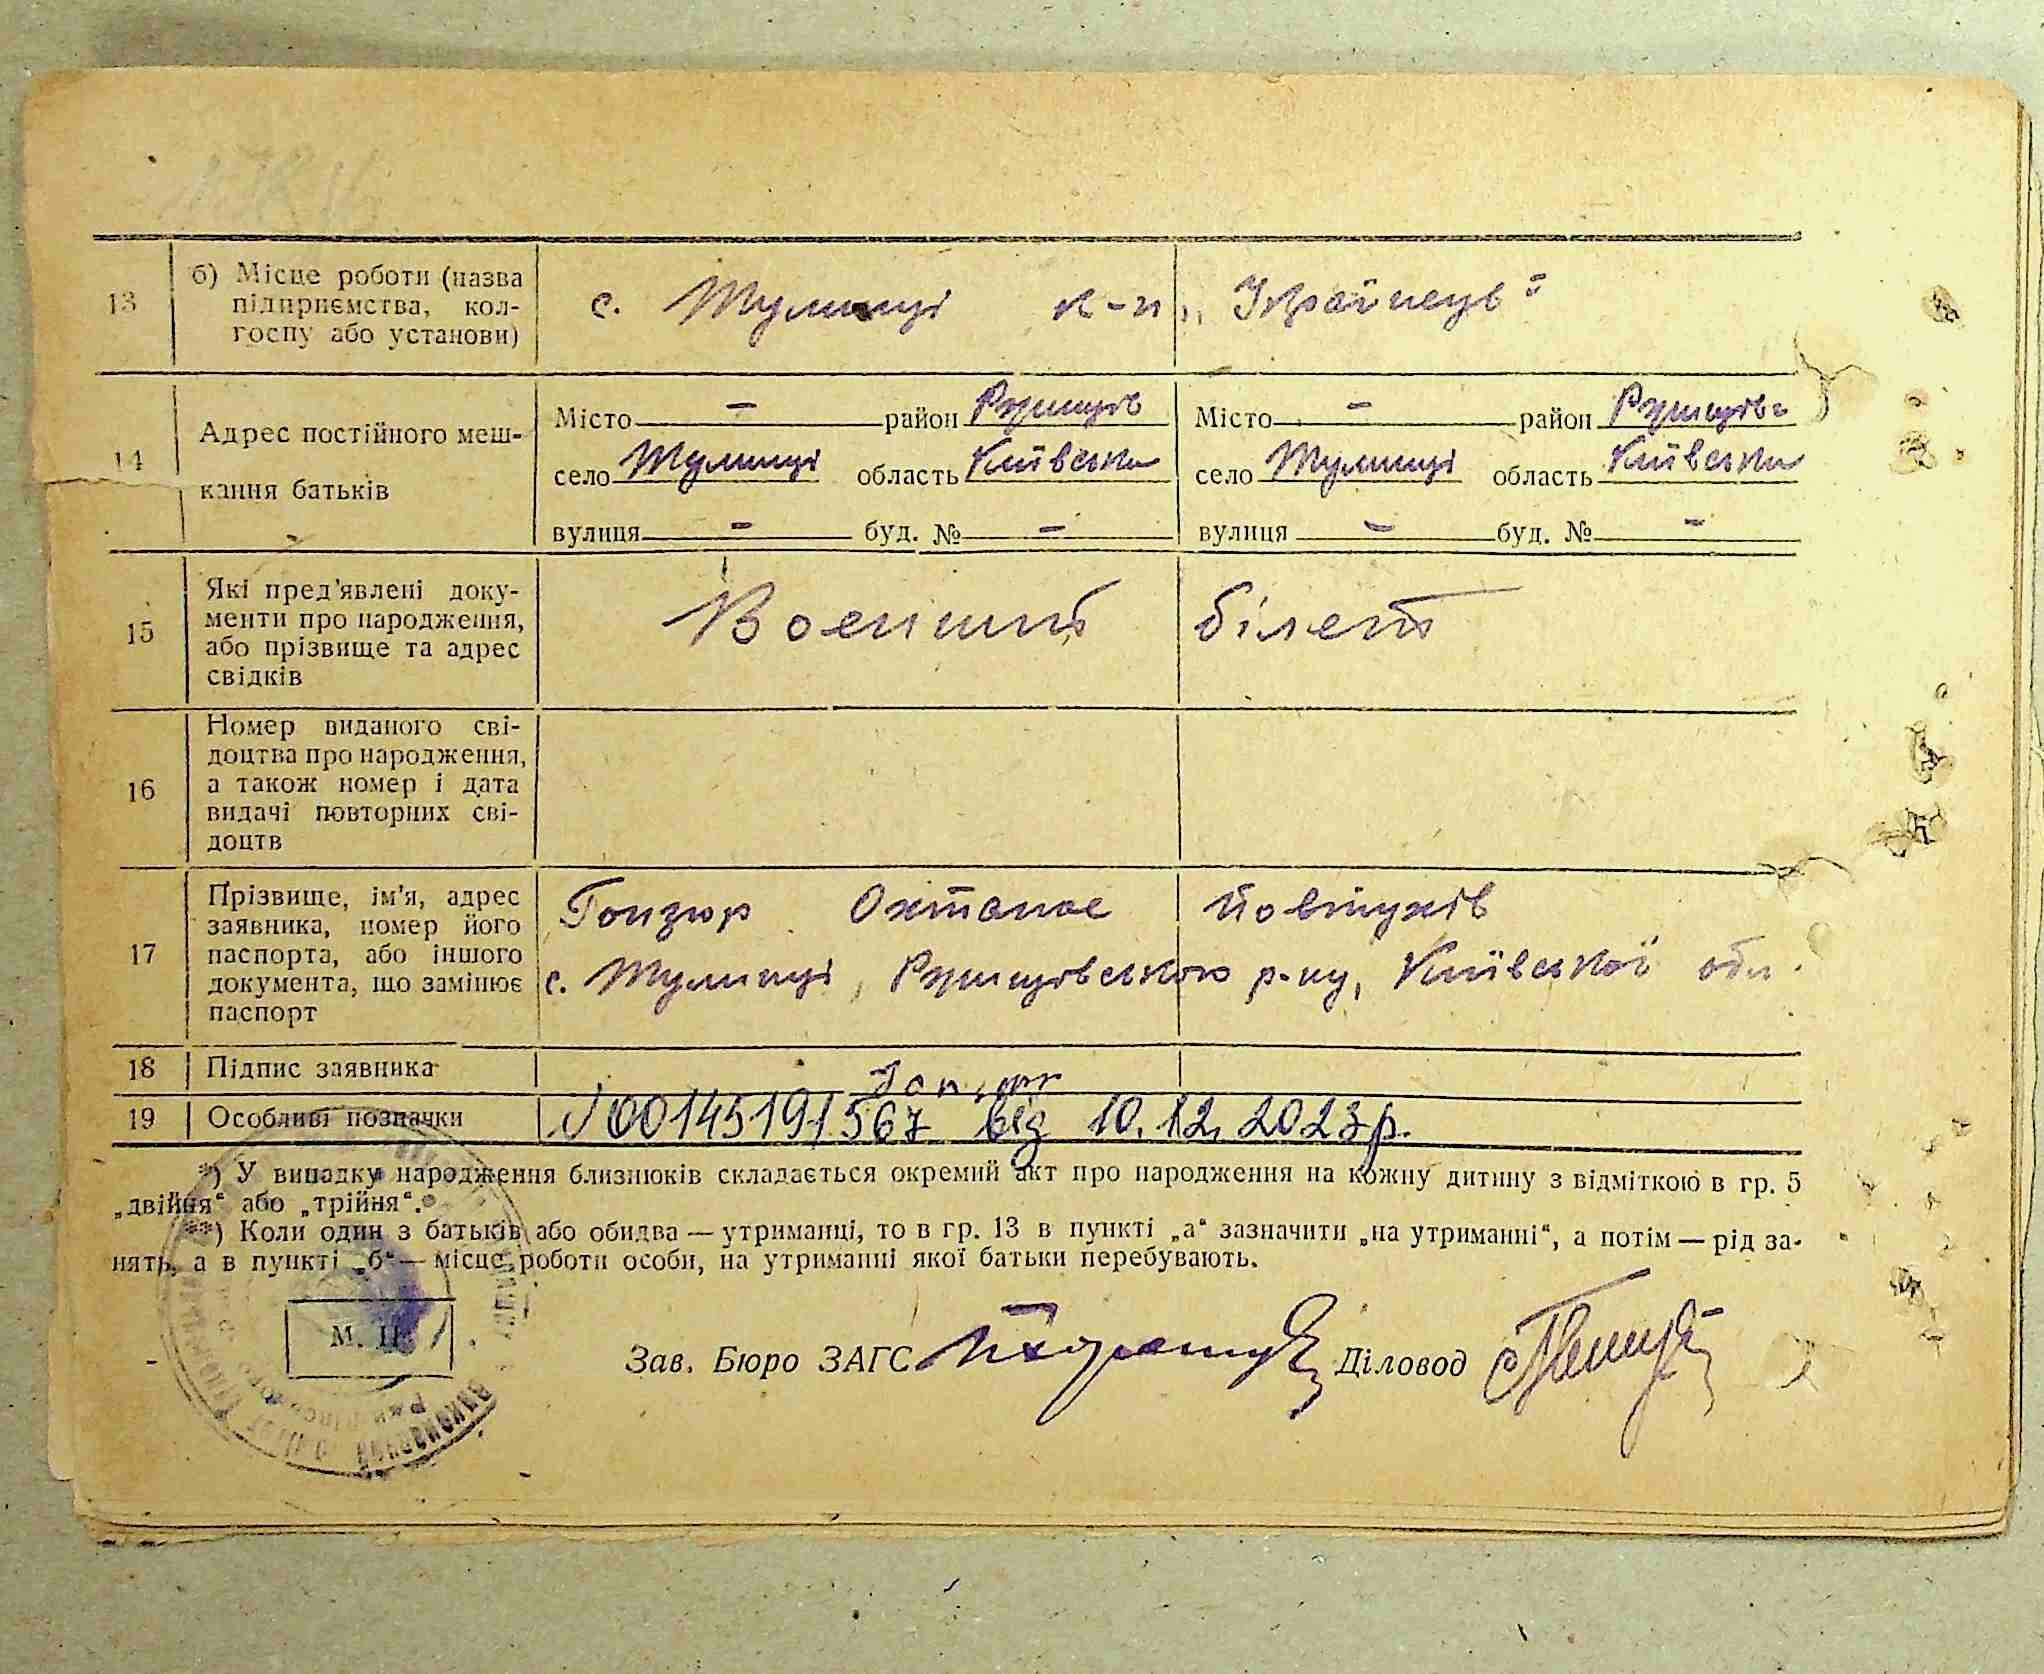 13
б) Місце роботи (назва
підприємства, кол-
госпу або установи)
с. Тулинці к-п „Українець“
14
Адрес постійного меш-
кання батьків
Місто — район Ржищів
село Тулинці область Київська
вулиця — буд. № —
Місто — район Ржищів-
село Тулинці область Київська
вулиця — буд. № —
15
Які пред'явлені доку-
менти про народження,
або прізвище та адрес
свідків
Воєнний білет
16
Номер виданого сві-
доцтва про народження,
а також номер і дата
видачі повторних сві-
доцтв
17
Прізвище, ім'я, адрес
заявника, номер його
паспорта, або іншого
документа, що замінює
паспорт
Гонзюр
с. Тулинці, Ржищівського р-ну, Київської обл.
18
Підпис заявника
19
Особливі позначки
№00145191567 від 10.12.2023р.
*) У випадку народження близнюків складається окремий акт про народження на кожну дитину з відміткою в гр. 5
„двійня“ або „трійня“.
**) Коли один з батьків або обидва — утриманці, то в гр. 13 в пункті „а“ зазначити „на утриманні“, а потім — рід за-
нять, а в пункті „б“ — місце роботи особи, на утриманні якої батьки перебувають.
М. П.
Зав. Бюро ЗАГС
Діловод